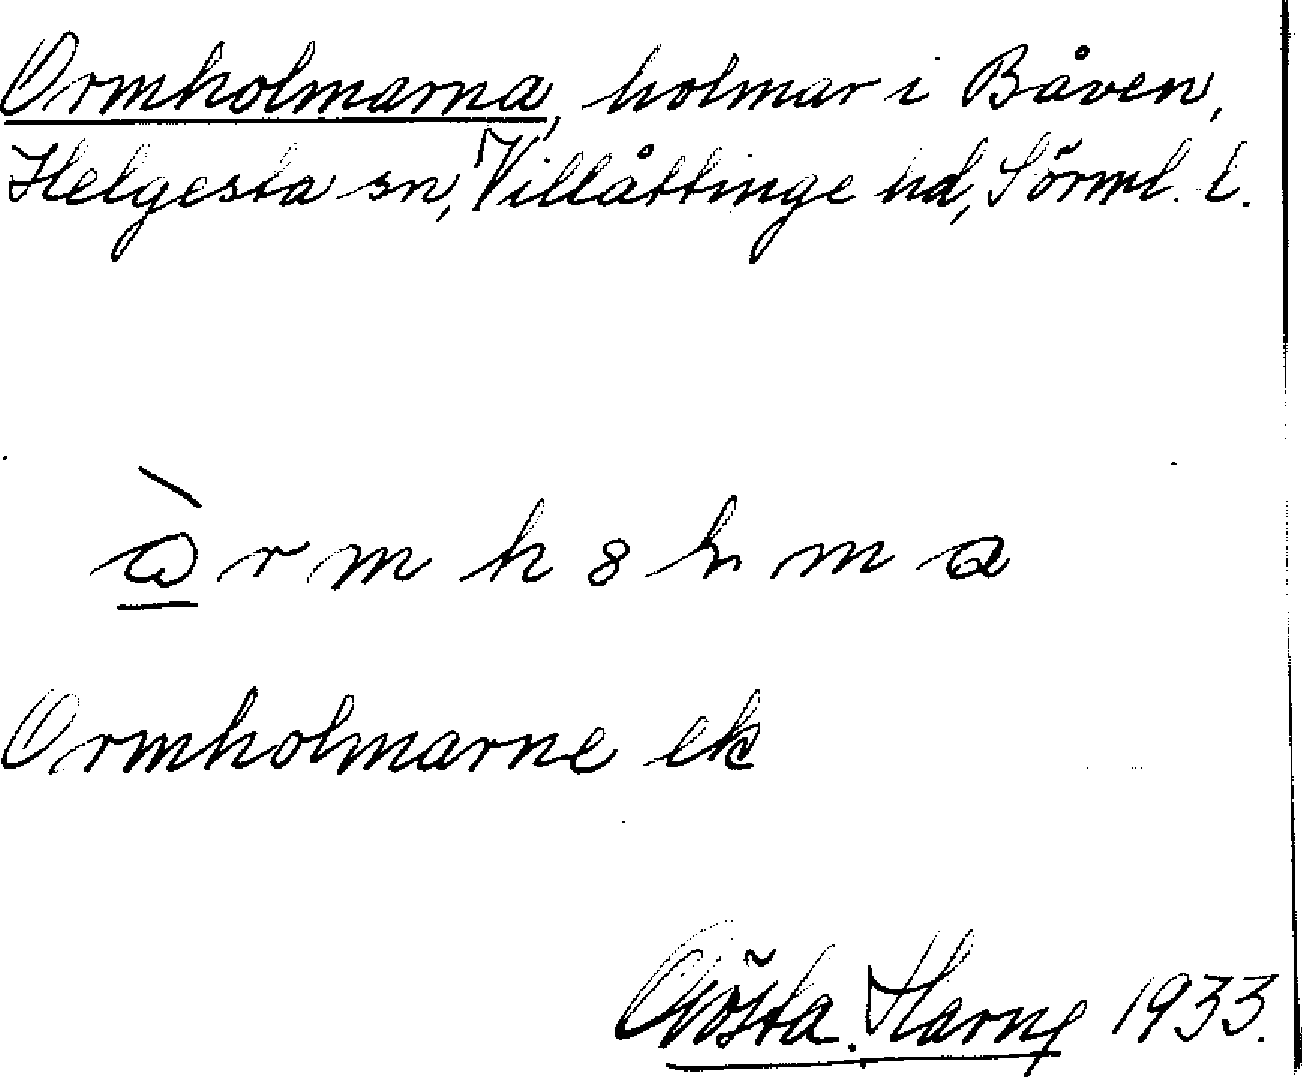 Ormholmarna, holmar i Båven,
Helgesta sn, Villåttinge hd, Sörml. l.
Ormholmarne ek
Gösta Harng 1933.